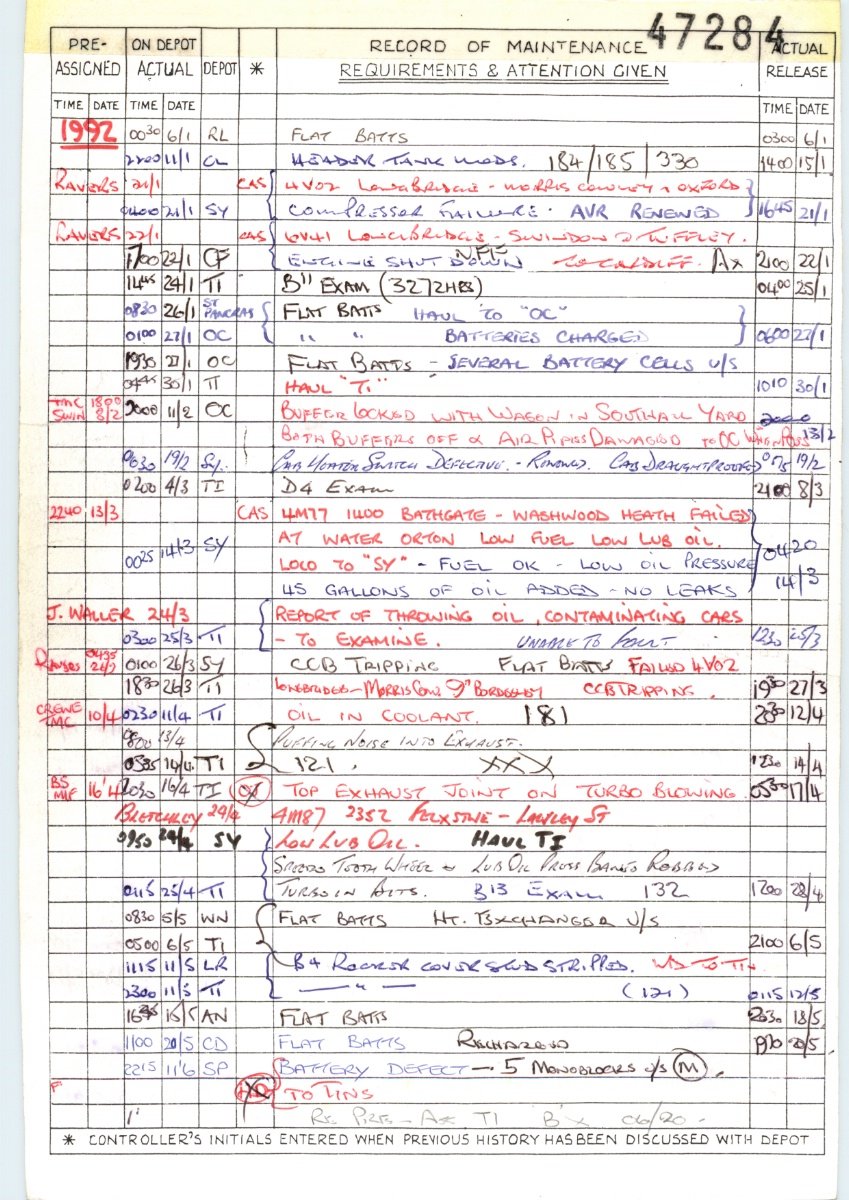 47284
PRE- ON DEPOT RECORD OF MAINTENANCE ACTUAL
ASSIGNED ACTUAL DEPOT * REQUIREMENTS & ATTENTION GIVEN RELEASE
TIME DATE TIME DATE TIME DATE
1992 0030 6/1 RL FLAT BATTS 0300 6/1
2200 11/1 CL HEADER TANK MODS. 184/185/330 1400 15/1
21/1 CAS 4V02 LONGBRIDGE - MORRIS COWLEY OXFORD
0400 21/1 SY COMPRESSOR FAILURE. AVR RENEWED 1645 21/1
22/1 CAS 6V41 LONGBRIDGE - SWINDON
1700 22/1 CF ENGINE SHUT DOWN N.F.F. TO CARDIFF. Ax 2100 22/1
1445 24/1 TI B" EXAM (3272HRS) 0400 25/1
0830 26/1 ST PANCRAS FLAT BATTS HAUL TO "OC"
0100 27/1 OC " " BATTERIES CHARGED 0600 27/1
1930 OC FLAT BATTS - SEVERAL BATTERY CELLS U/S
0445 30/1 TI HAUL "TI" 1010 30/1
TMC SWIN 1800 8/2 2000 11/2 OC BUFFER LOCKED WITH WAGON IN SOUTHALL YARD
BOTH BUFFERS OFF & AIR PIPES DAMAGED TO OC 13/2
0630 19/2 SY. CAB HEATER SWITCH DEFECTIVE. - RENEWED. CAB DRAUGHTPROOFED 19/2
0200 4/3 TI D4 EXAM 2100 8/3
2240 13/3 CAS 4M77 1400 BATHGATE - WASHWOOD HEATH FAILED
AT WATER ORTON LOW FUEL LOW LUB OIL.
0025 14/3 SY LOCO TO "SY" - FUEL OK - LOW OIL PRESSURE 0420
45 GALLONS OF OIL ADDED - NO LEAKS 14/3
J. WALLER 24/3 REPORT OF THROWING OIL, CONTAMINATING CARS
0300 25/3 TI - TO EXAMINE. UNABLE TO FAULT 1230 25/3
0100 26/3 SY CCB TRIPPING FLAT BATTS FAILED 4V02
1830 26/3 TI LONGBRIDGE - MORRIS COW. BORDESLEY CCB TRIPPING. 1930 27/3
CREWE TMC 10/4 0230 11/4 TI OIL IN COOLANT. 181 2030 12/4
13/4 PUFFING NOISE INTO EXHAUST.
0535 14/4 TI 121. XXX 1230 14/4
BS 16/4 2030 16/4 TI TOP EXHAUST JOINT ON TURBO BLOWING. 0530 17/4
BLETCHLEY 24/4 4M87 2352 FELXSTWE - LAWLEY ST
0950 24/4 SY LOW LUB OIL. HAUL TI
SPEEDO TOOTH WHEEL & LUB OIL PRESS BANJO ROBBED
0115 25/4 TI TURBO IN BITS. B13 EXAM 132 1700 28/4
0830 5/5 WN FLAT BATTS HT. EXCHANGER U/S
0500 6/5 TI 2100 6/5
1115 11/5 LR B4 ROCKER COVER STUD STRIPPED. TO TIN
2300 11/5 TI — " — (121) 0115 12/5
1645 AN FLAT BATTS 2030 18/5
1100 20/5 CD FLAT BATTS RECHARGED 20/5
2215 11/6 SP BATTERY DEFECT - 5 MONOBLOCKS U/S (M).
TO TINS
TI 06/20.
* CONTROLLER'S INITIALS ENTERED WHEN PREVIOUS HISTORY HAS BEEN DISCUSSED WITH DEPOT